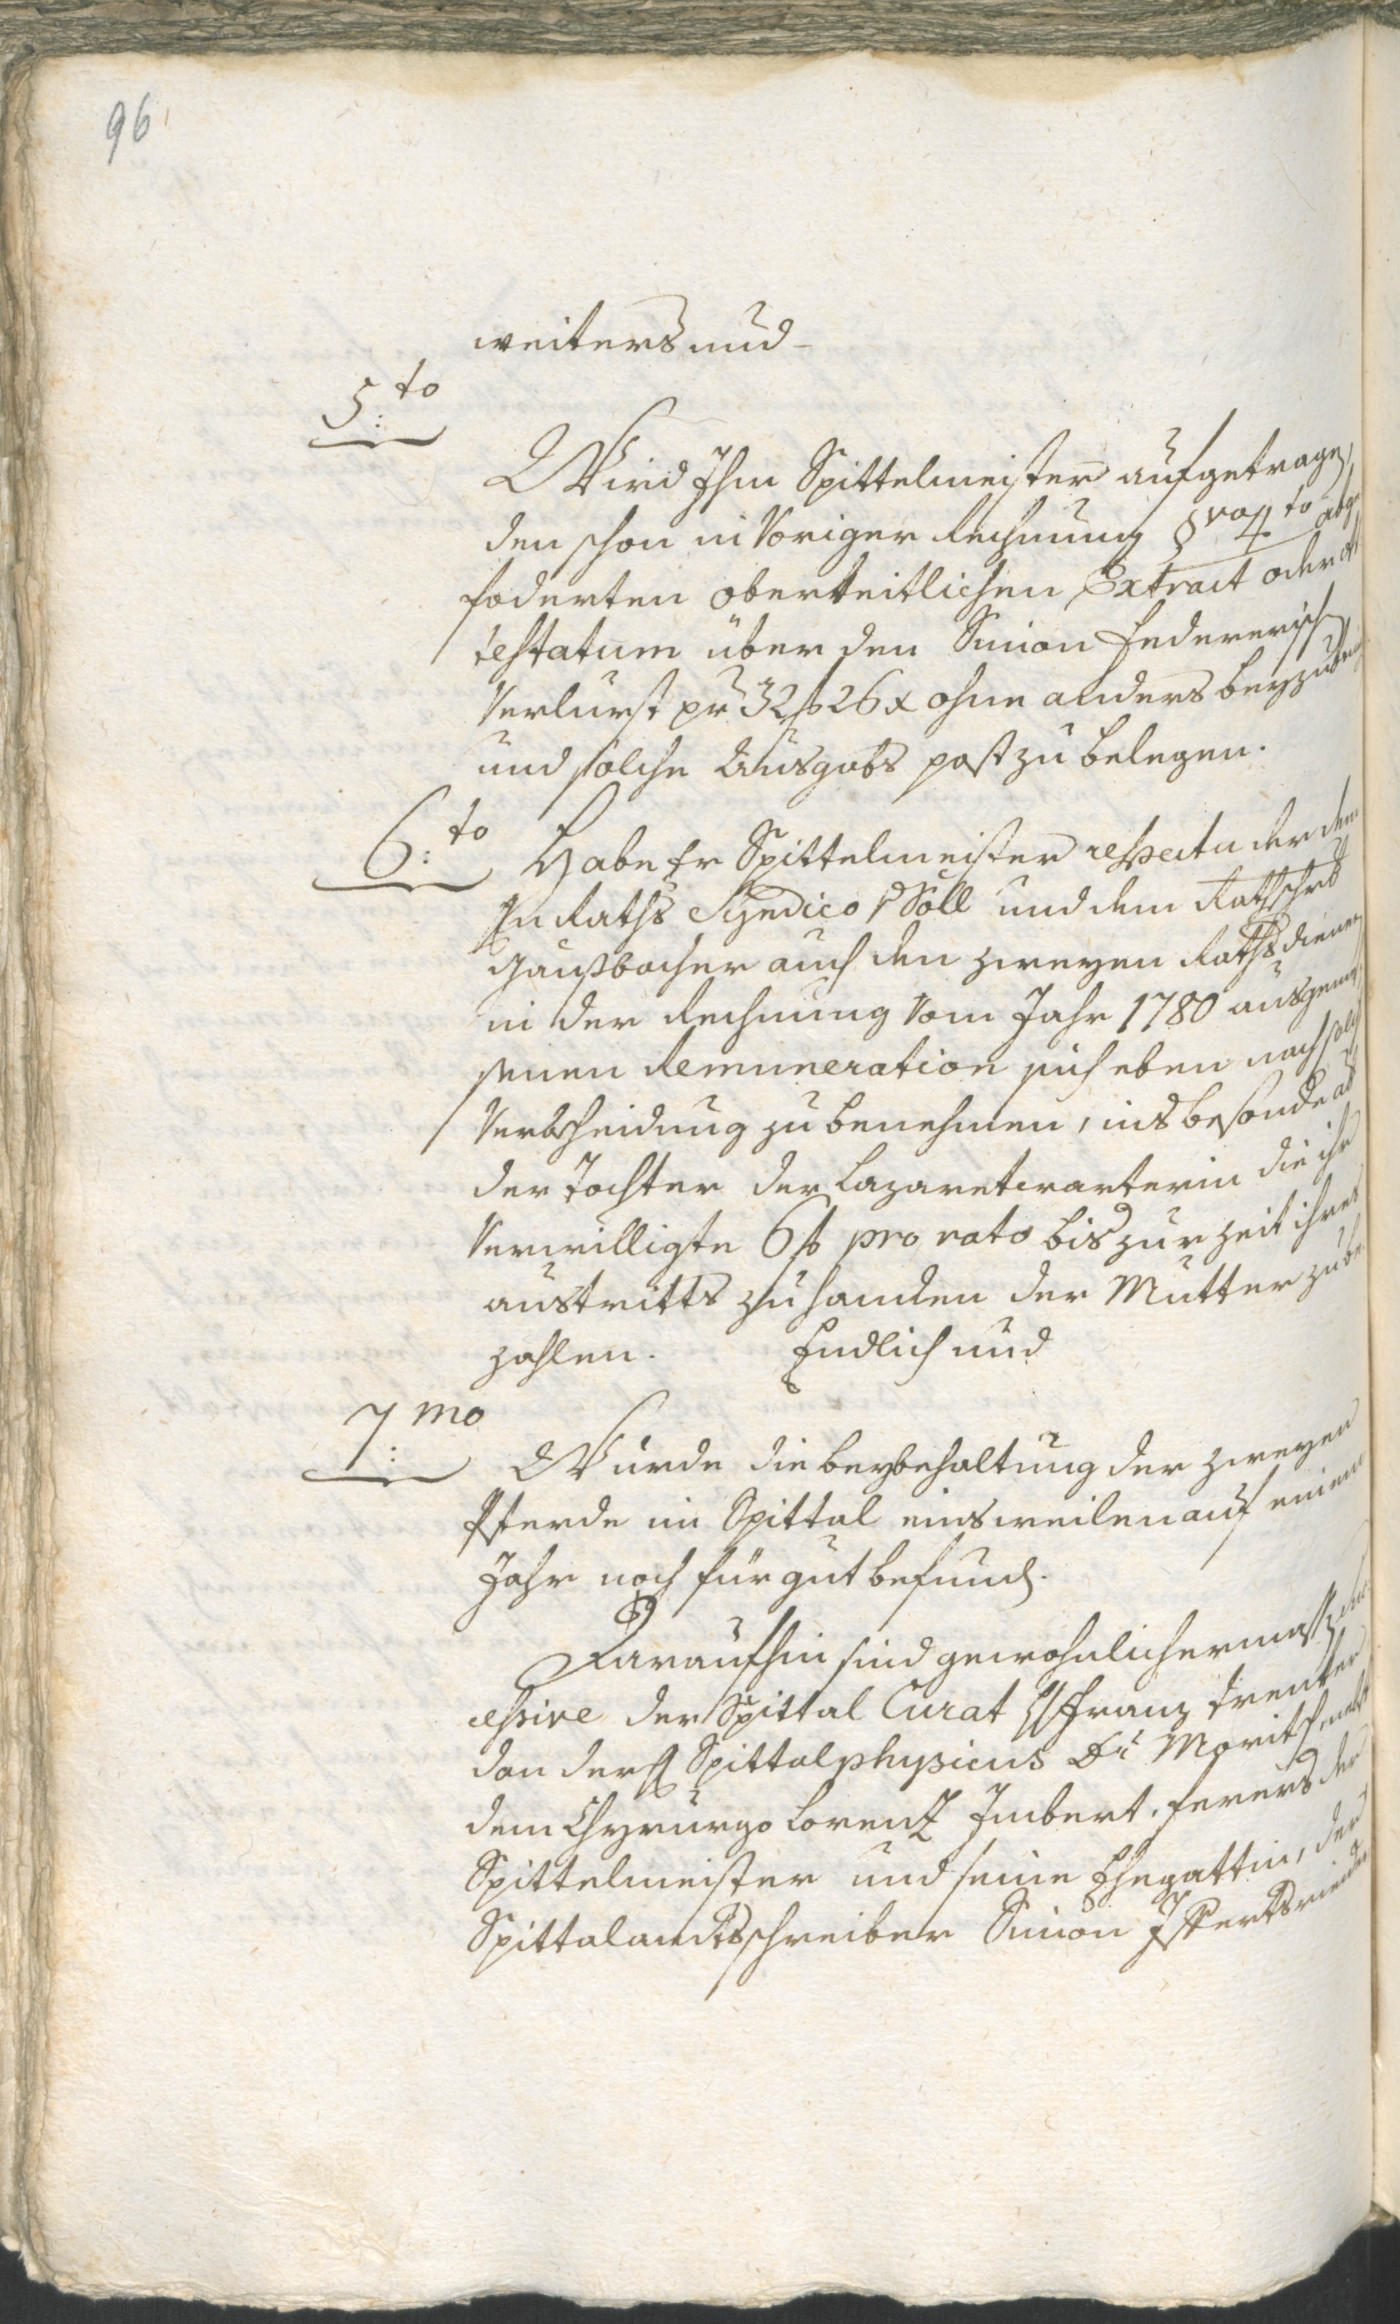 96
weiters und
5:to
Wird Ihm Spittelmeister aufgetragen,
den schon in voriger Rechnung §vo 4to abge
foderten oberkeitlichen Extract oder At
testatum über den Simon Federerisch
Verlurst pr 32 f 26 x ohne anders beyzubring
und solche Ausgabs post zu belegen.
6:to Habe Er Spittelmeister respectu der dem
Hn Raths Syndico v Söll und dem Rathschrb
Gaußbacher auch den zweyen Rathsdienern
in der Rechnung vom Jahr 1780 ausgeme
senen Remuneration sich eben nach solch
Verbscheidung zu benehmen, insbesonde
der Tochter der Lazaretwarterin die ihr
verwilligte 6 f pro rato bis zur zeit ihres
austritts zuhanden der Mutter zu be
zahlen. Endlich und
7:mo
Wurde die beybehaltung der zweyen
Pferde im Spittal einsweilen auf einem
Jahr noch für gut befund.
Daraufhin sind gewohnlichermassen suc
cessive der Spittal Curat H Franz Trenker
dan der H Spittalphysicus Dr. Moritsch nebst
dem Chyrurgo Lorenz Imbert. ferers der
Spittelmeister und seine Ehegattin, der
Spittalamtsschreiber Simon